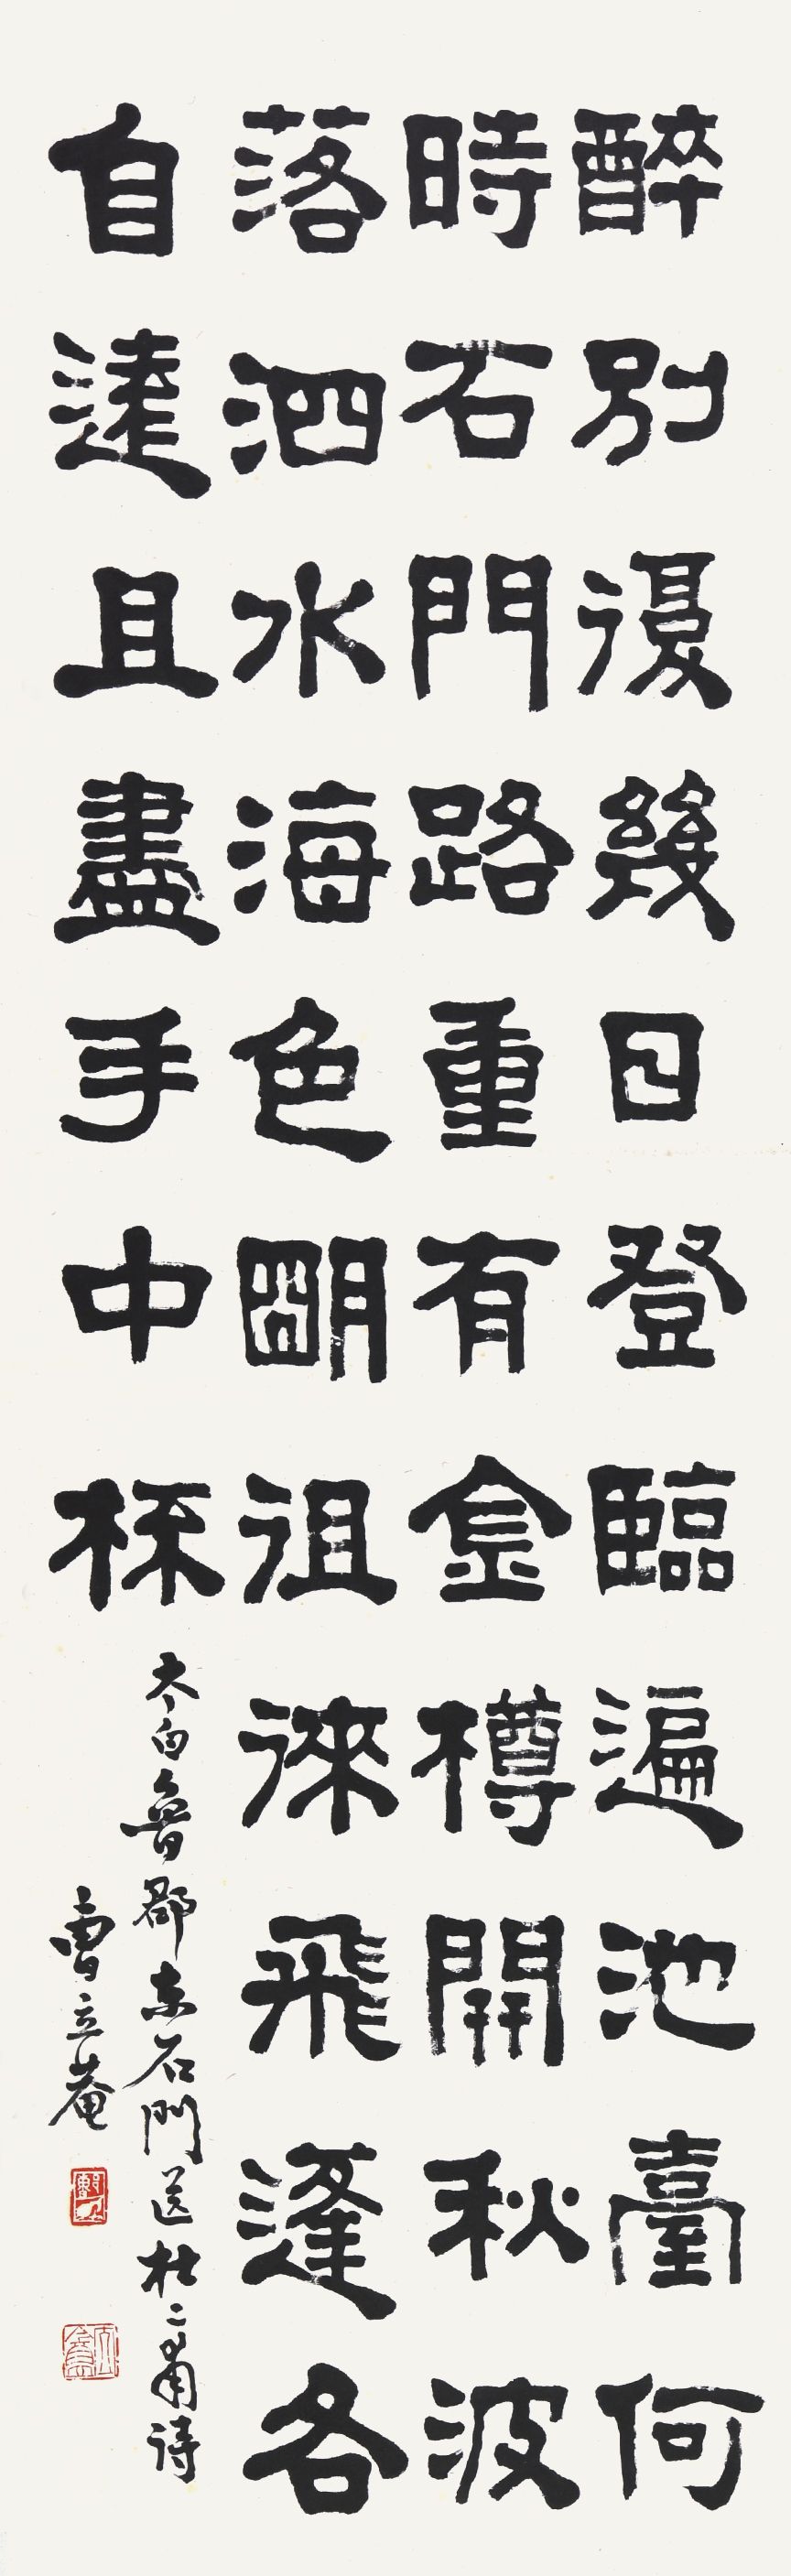 醉別復幾日登臨遍池臺何
時石門路重有金樽開秋波
落泗水海色朙徂徠飛蓬各
自遠且盡手中杯
太白魯郡东石門送杜二甫诗
曹立菴